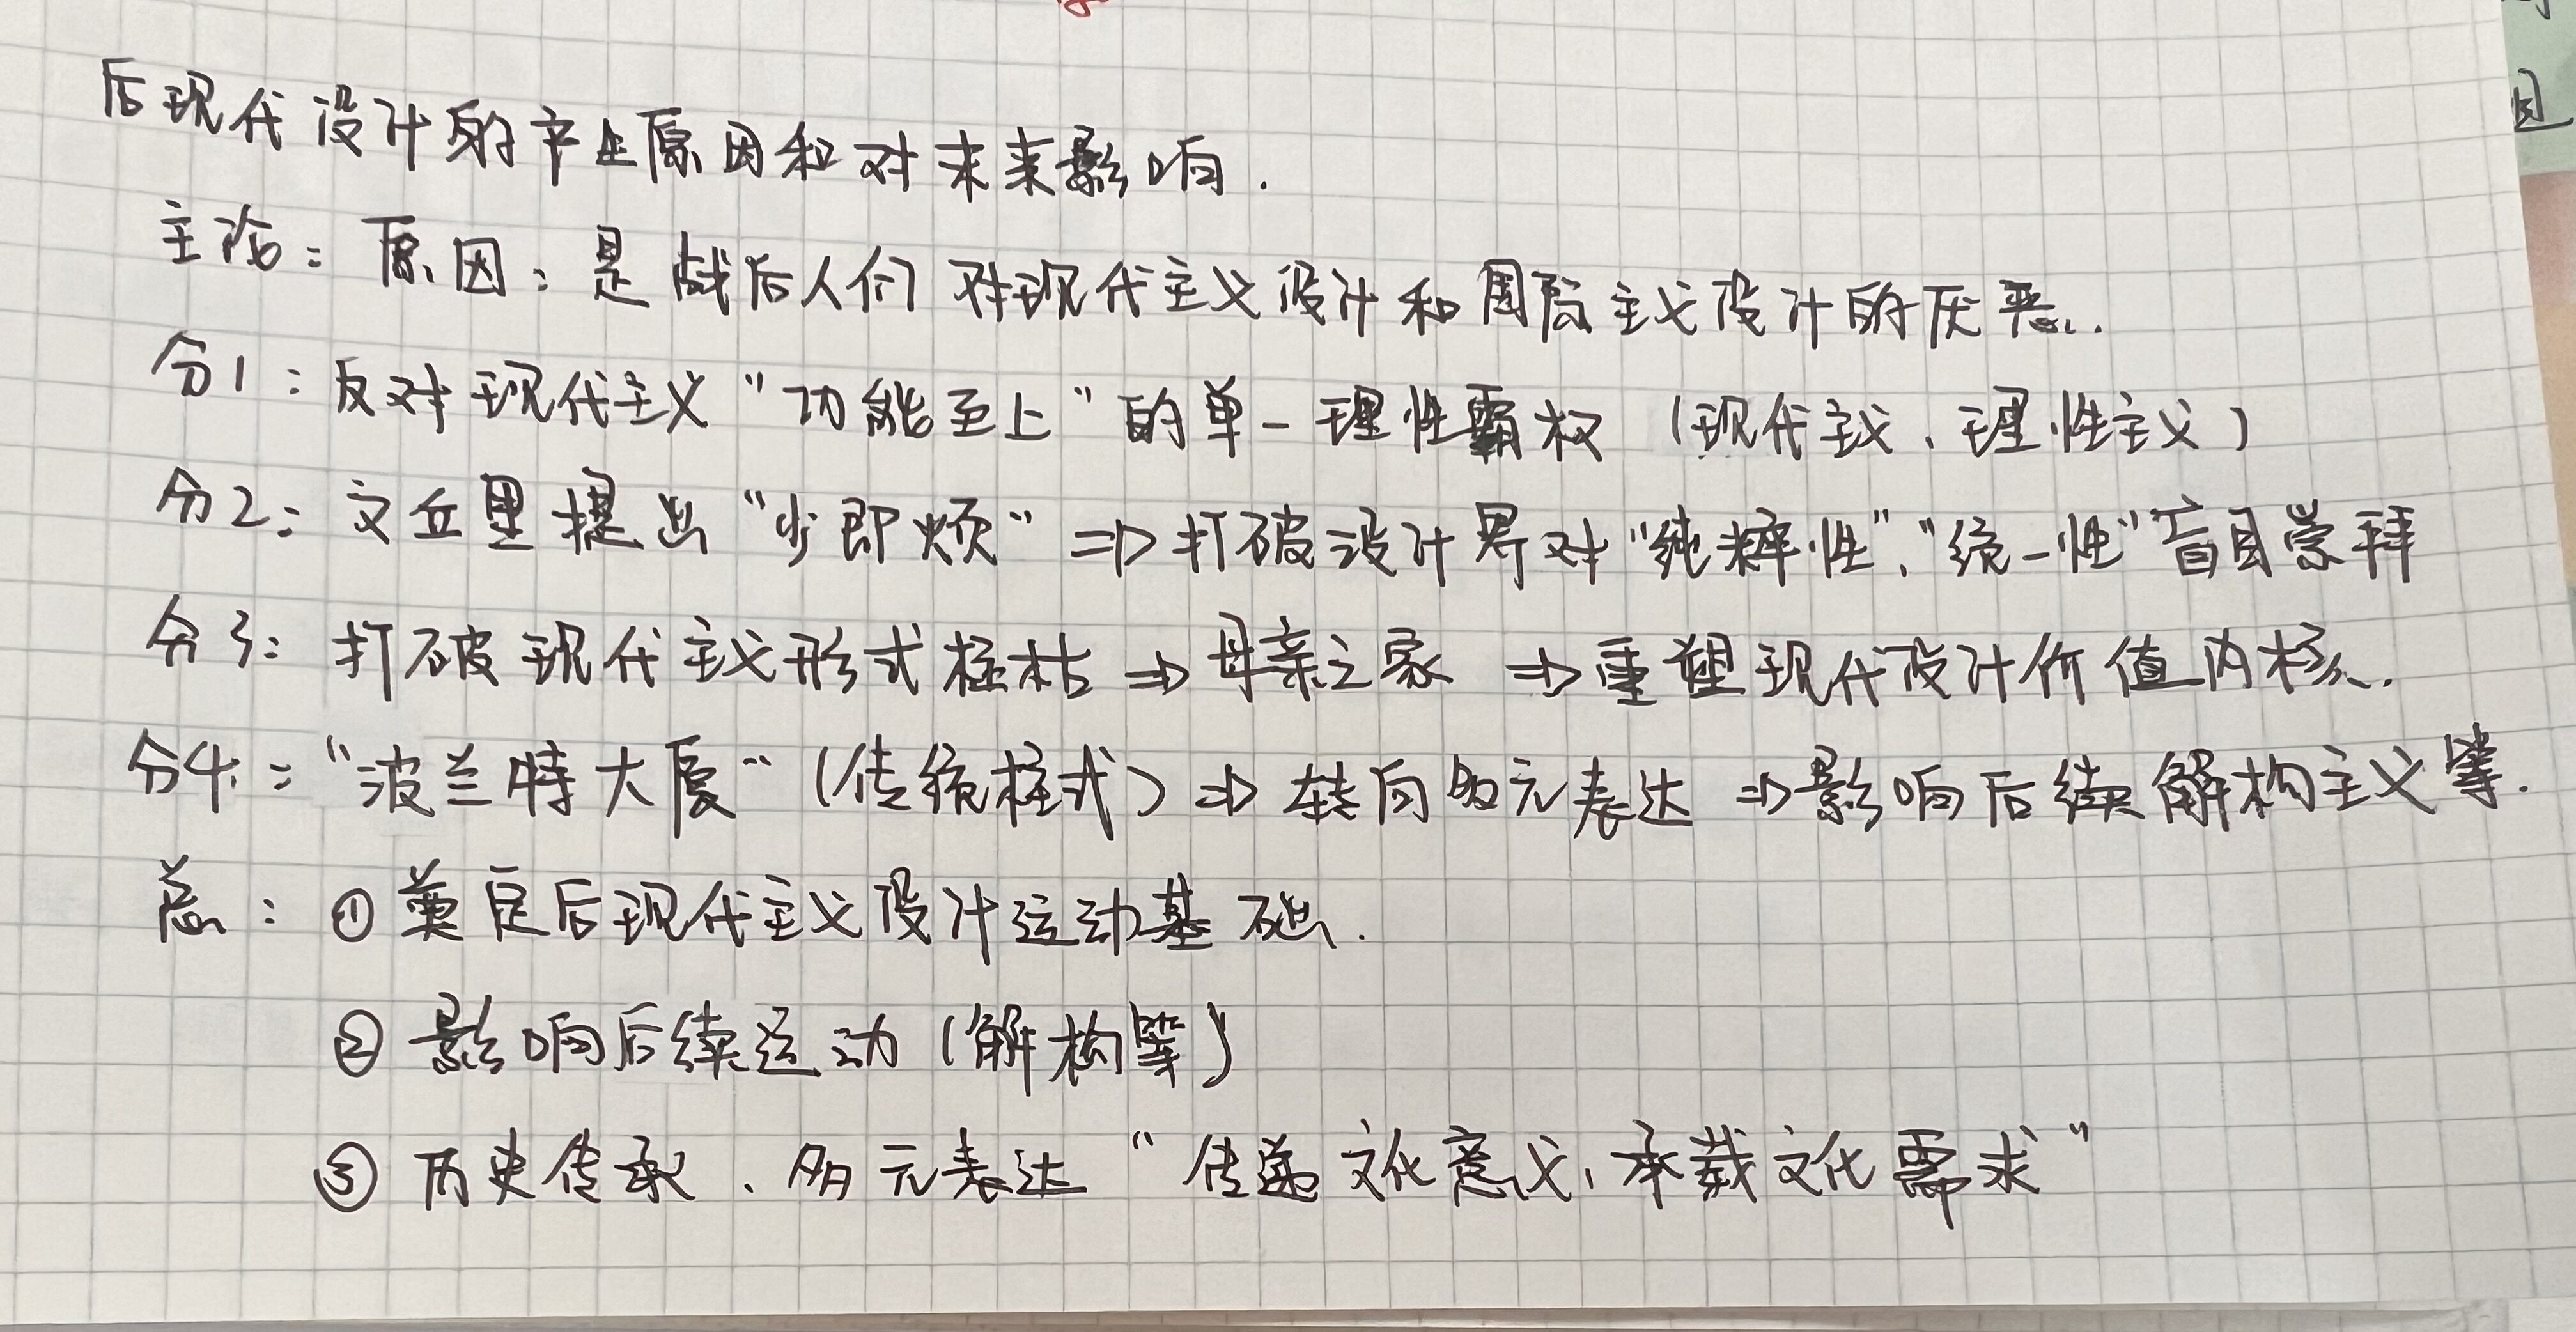 后现代设计的产生原因和对未来影响.
主论：原因：是战后人们对现代主义设计和国际主义设计的厌恶.
分1：反对现代主义“功能至上”的单一理性霸权（现代主义、理性主义）
分2：文丘里提出“少即烦”⇒打破设计界对“纯粹性”、“统一性”盲目崇拜
分3：打破现代主义形式桎梏⇒母亲之家⇒重塑现代设计价值内核.
分4：“波兰特大厦”（传统柱式）⇒转向多元表达⇒影响后续解构主义等.
总：①奠定后现代主义设计运动基础.
②影响后续运动（解构等）
③历史传承、多元表达“传递文化意义、承载文化需求”